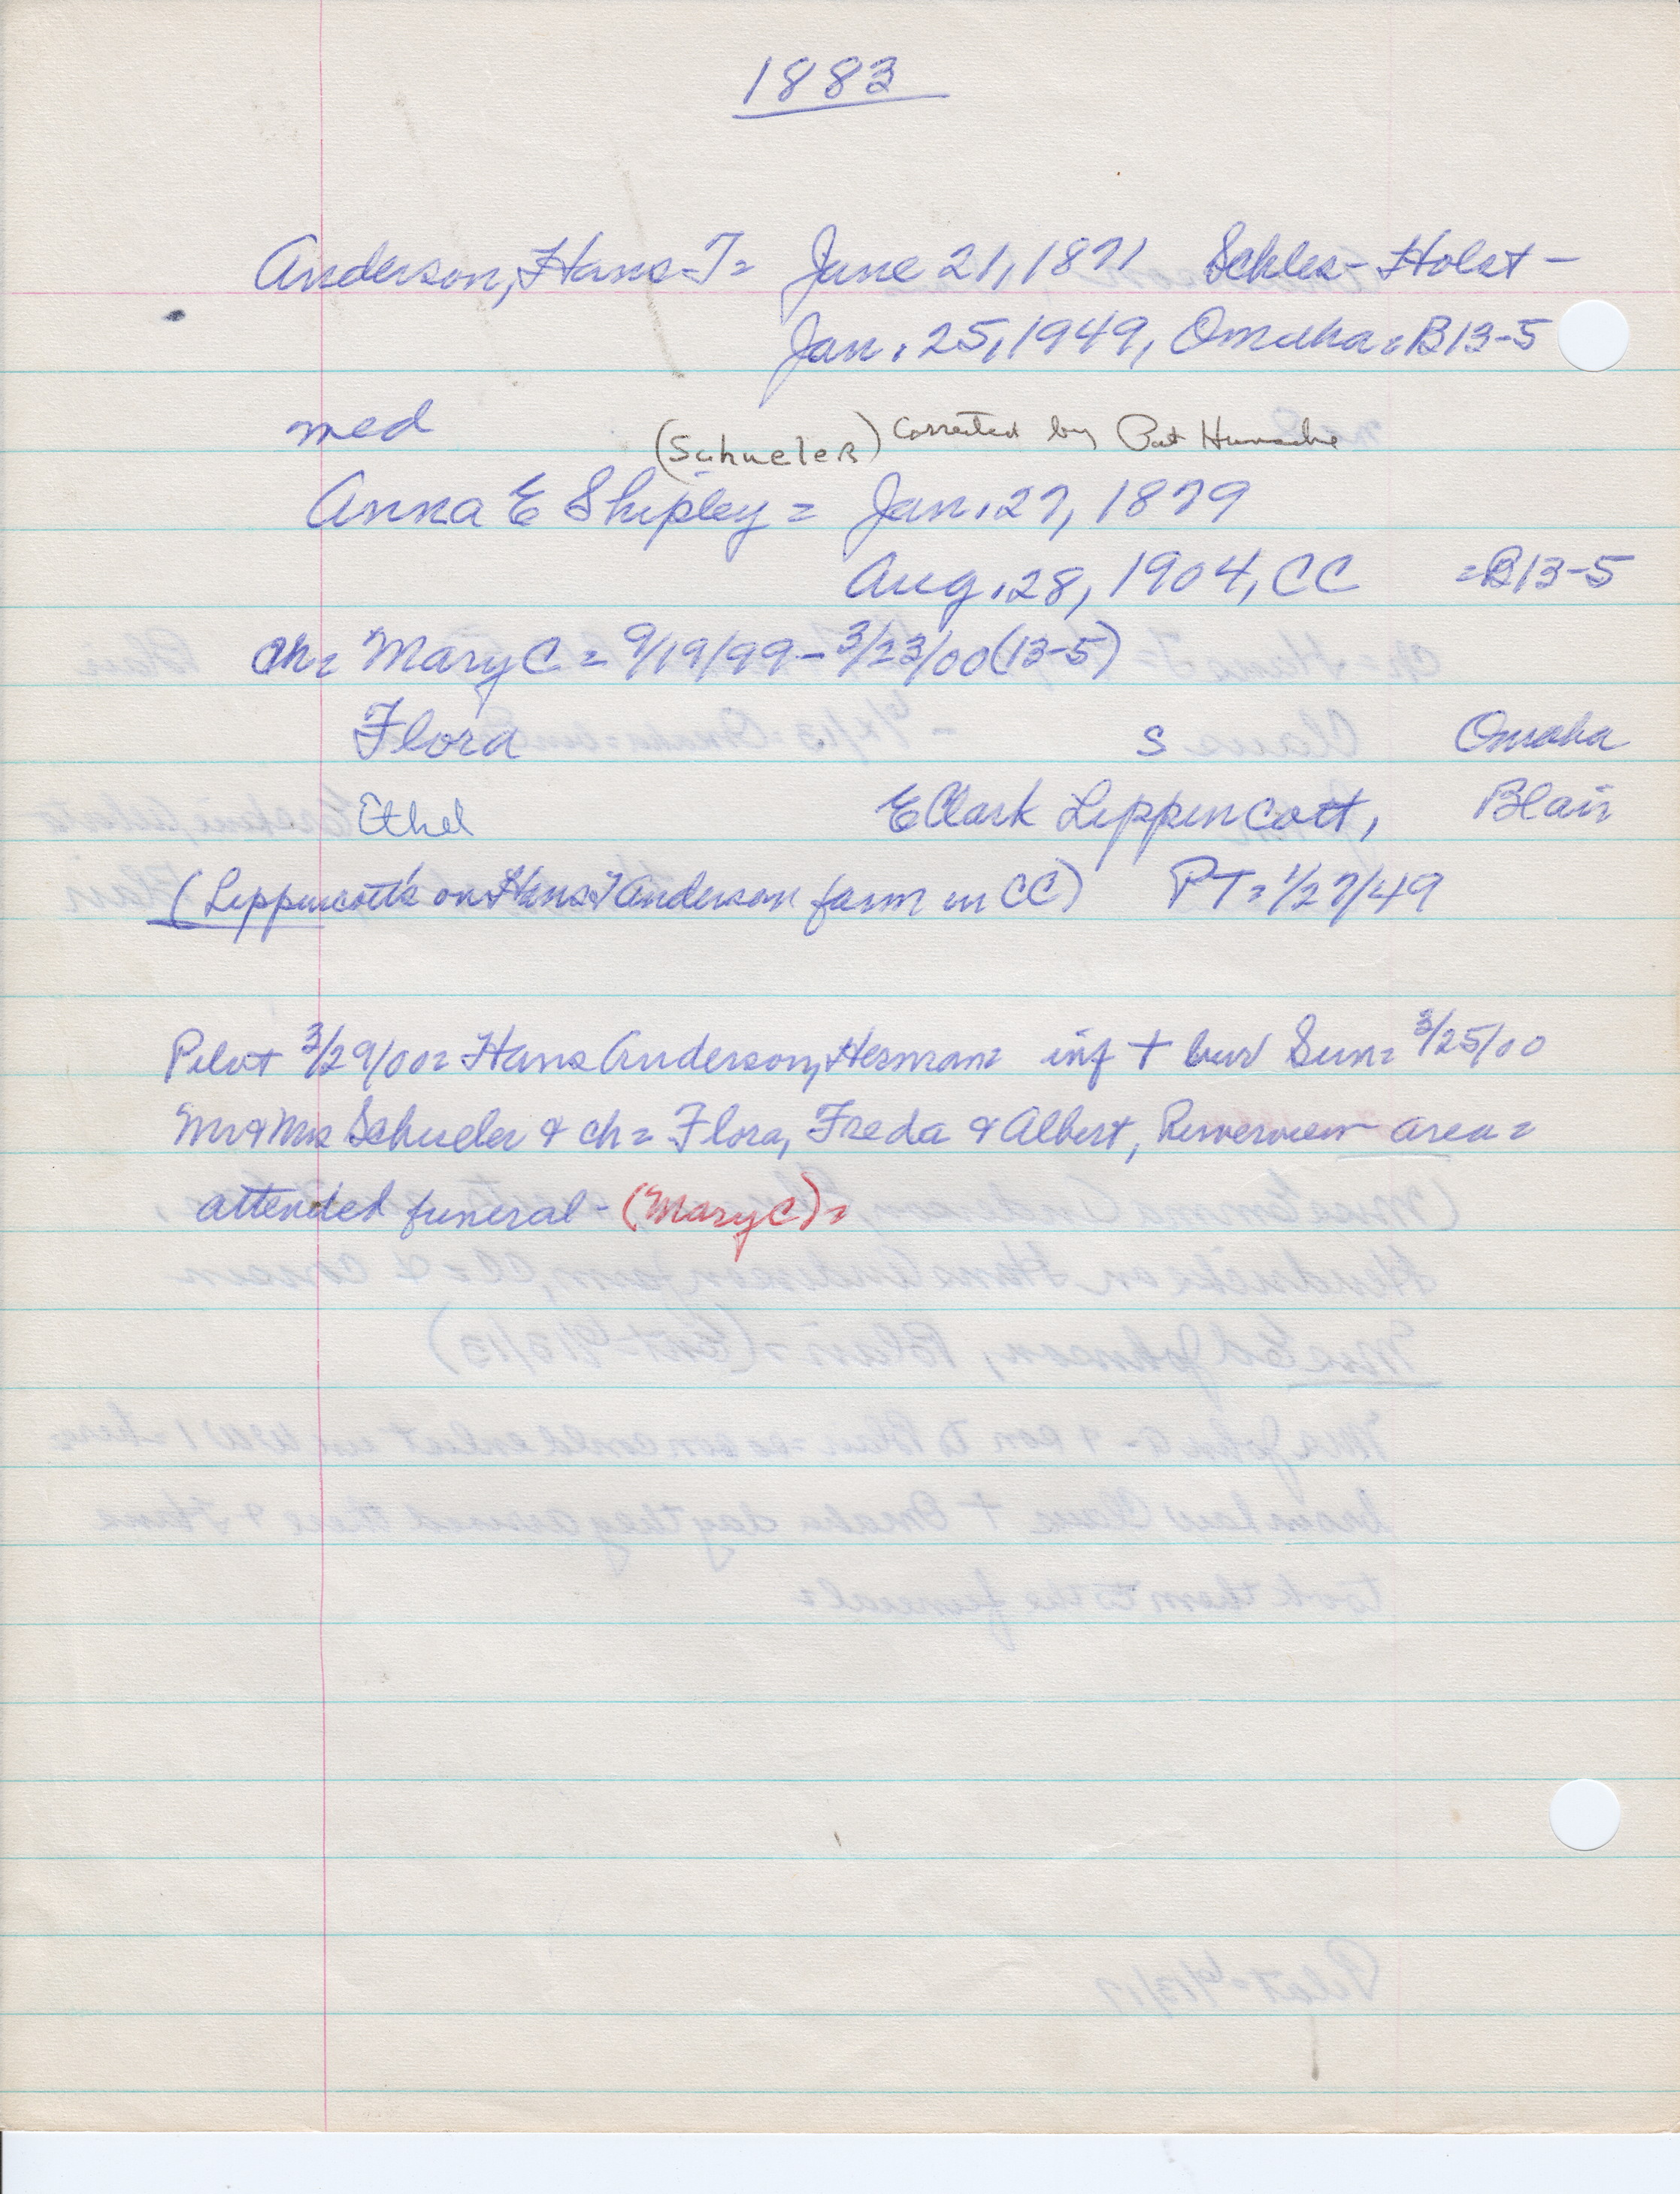 1883
Anderson, Hans T = June 21, 1871 Schles-Holst -
Jan. 25, 1949, Omaha = B13-5
med
(Schueler) corrected by Pat
Anna E Shipley = Jan. 27, 1879
Aug. 28, 1904, CC = B13-5
ch = Mary C = 9/19/99 - 3/23/00 (13-5)
Flora S Omaha
Ethel E Clark Lippencott, Blair
(Lippencott's on Hans T Anderson farm in CC) PT = 1/27/49
Pilot 3/29/00 = Hans Anderson, Herman = inf + bur Sun = 3/25/00
Mr & Mrs Schueler & ch = Flora, Freda & Albert, Riverview area =
attended funeral - (Mary C) =